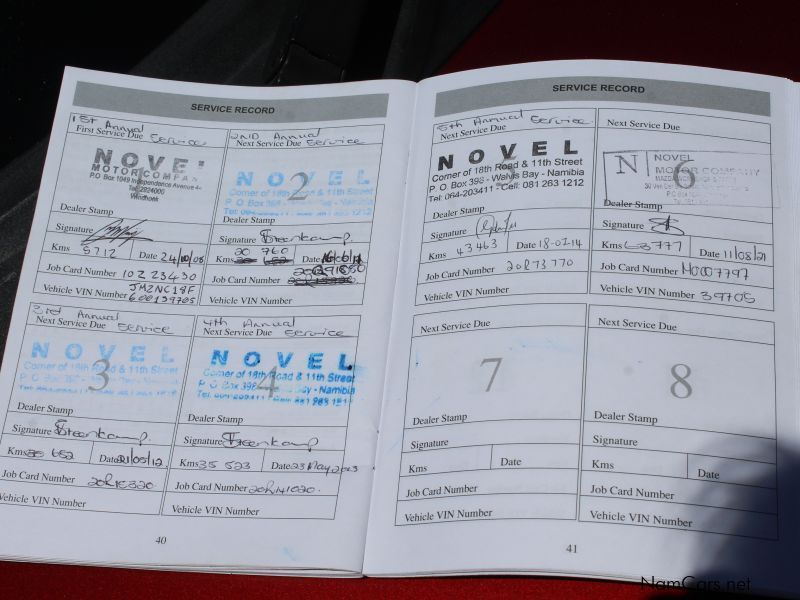 SERVICE RECORD
1st Annual
First Service Due Service
NOVEL
MOTOR COMPAN
P.O Box 1049 Independence Avenue
Tel: 2824000
Windhoek
Dealer Stamp
Signature
Kms 5712 Date 24/10/08
Job Card Number 10223430
Vehicle VIN Number JMZNC18F
600139705
2ND Annual
Next Service Due Service
NOVEL
2
Corner of 18th Road & 11th Street
Dealer Stamp
Signature Steenkamp.
Kms 20 760 Date
Job Card Number
Vehicle VIN Number
3rd Annual
Next Service Due Service
NOVEL
3
Corner of 18th Road & 11th Street
Dealer Stamp
Signature Steenkamp.
Kms 35 652 Date 21/05/12.
Job Card Number 20R15320
Vehicle VIN Number
4th Annual
Next Service Due Service
NOVEL
4
Corner of 18th Road & 11th Street
P. O. Box 398 Bay - Namibia
Dealer Stamp
Signature Steenkamp
Kms 35 523 Date 23 May 2013
Job Card Number 20R141020.
Vehicle VIN Number
40
SERVICE RECORD
5th Annual Service.
Next Service Due
NOVEL
Corner of 18th Road & 11th Street
P. O. Box 398 - Walvis Bay - Namibia
Tel: 064-203411 - Cell: 081 263 1212
Dealer Stamp
Signature
Kms 43463 Date 18-02-14
Job Card Number 20R73770
Vehicle VIN Number
Next Service Due
N NOVEL
MOTOR COMPANY
6
Dealer Stamp
Signature
Kms 63777 Date 11/05/21
Job Card Number M0007797
Vehicle VIN Number 39705
Next Service Due
7
Dealer Stamp
Signature
Kms Date
Job Card Number
Vehicle VIN Number
Next Service Due
8
Dealer Stamp
Signature
Kms Date
Job Card Number
Vehicle VIN Number
41
NamCars.net